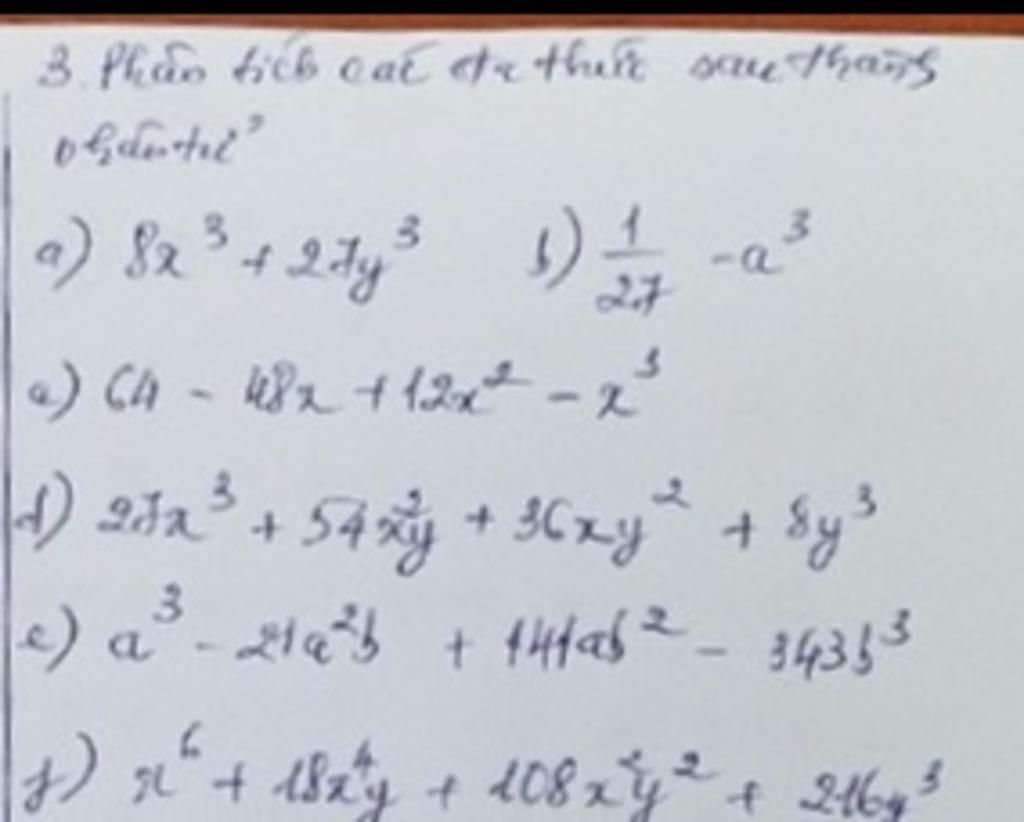 3. Phân tích các đa thức sau thành
nhân tử
a) 8x³ + 27y³ b) 1/27 - a³
c) 64 - 48x + 12x² - x³
d) 27x³ + 54x²y + 36xy² + 8y³
e) a³ - 21a²b + 141ab² - 343b³
f) x⁶ + 18x⁴y + 108x²y² + 216y³